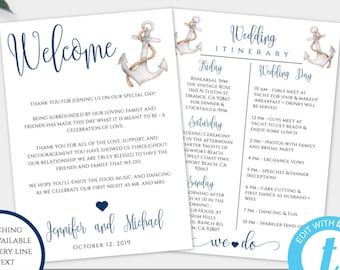 Welcome
THANK YOU FOR JOINING US ON OUR SPECIAL DAY!
BEING SURROUNDED BY OUR LOVING FAMILY AND
FRIENDS HAS MADE THIS DAY WHAT IT IS MEANT TO BE - A
CELEBRATION OF LOVE.
THANK YOU FOR ALL OF THE LOVE, SUPPORT, AND
ENCOURAGEMENT YOU HAVE SHOWED US THROUGHOUT
OUR RELATIONSHIP. WE ARE TRULY BLESSED TO HAVE THE
FRIENDS AND FAMILY THAT WE DO.
WE HOPE YOU'LL ENJOY THE FOOD, MUSIC, AND DANCING
AS WE CELEBRATE OUR FIRST NIGHT AS MR. AND MRS.
Jennifer and Michael
OCTOBER 12, 2019
Wedding
ITINERARY
Friday
REHEARSAL DINNER
6PM - 9PM
THE VINTAGE ROSE
160 N. TUSTIN ST
ORANGE, CA 92867
FOR DINNER &
COCKTAILS 6-9PM
Saturday
WEDDING CEREMONY
IN THE AFTERNOON
NEWPORT BEACH, CA
92660
Sunday
Wedding Day
10 AM - GIRLS MEET AT
YACHT FOR HAIR & MAKEUP
- BREAKFAST + DRINKS WILL
BE SERVED
12 PM - GUYS MEET AT
YACHT TO GET READY &
ENJOY SOME LUNCH
2 PM - PHOTOS WITH FAMILY
AND BRIDAL PARTY
4 PM - WEDDING CEREMONY
5 PM - SPEECHES & DINNER
RECEPTION
6 PM - CAKE CUTTING &
FIRST DANCE AS HUSBAND +
WIFE
7 PM - DANCING & FUN
10 PM - SPARKLER SEND OFF
we do
EDIT WITH